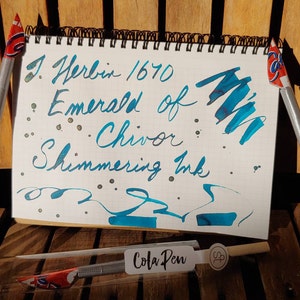 J. Herbin 1670
Emerald of
Chivor
Shimmering Ink
Cola Pen